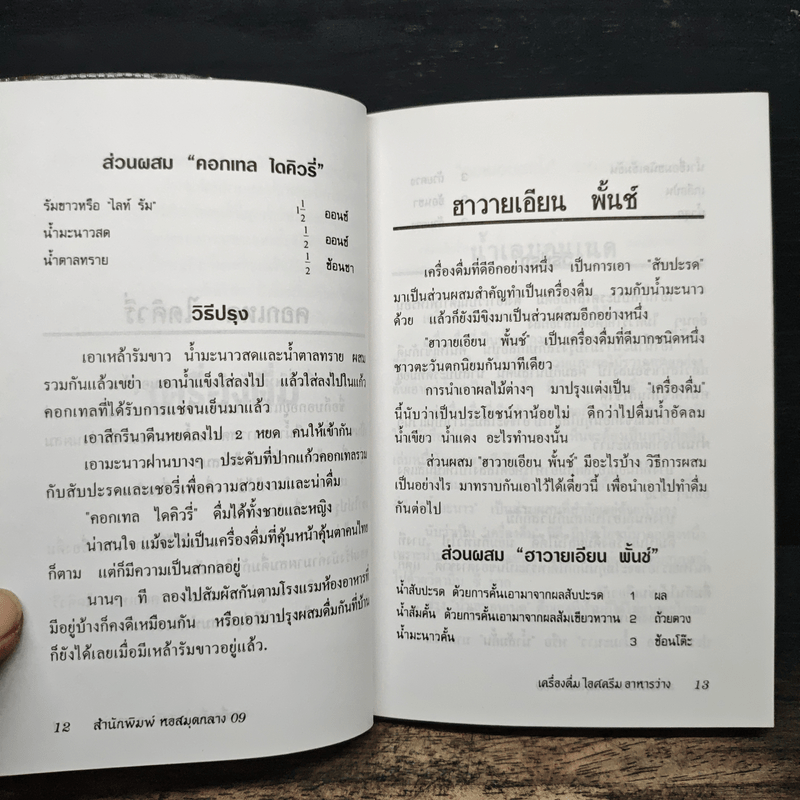 ส่วนผสม “คอกเทล ไดคิวรี่”
รัมขาวหรือ "ไลท์ รัม" 1 1/2 ออนซ์
น้ำมะนาวสด 1/2 ออนซ์
น้ำตาลทราย 1/2 ช้อนชา
วิธีปรุง
เอาเหล้ารัมขาว น้ำมะนาวสดและน้ำตาลทราย ผสม
รวมกันแล้วเขย่า เอาน้ำแข็งใส่ลงไป แล้วใส่ลงไปในแก้ว
คอกเทลที่ได้รับการแช่จนเย็นมาแล้ว
เอาสีกรีนาดีนหยดลงไป 2 หยด คนให้เข้ากัน
เอามะนาวฝานบางๆ ประดับที่ปากแก้วคอกเทลรวม
กับสับปะรดและเชอรี่เพื่อความสวยงามและน่าดื่ม
"คอกเทล ไดคิวรี่" ดื่มได้ทั้งชายและหญิง
น่าสนใจ แม้จะไม่เป็นเครื่องดื่มที่คุ้นหน้าคุ้นตาคนไทย
ก็ตาม แต่ก็มีความเป็นสากลอยู่
นานๆ ที ลองไปสัมผัสกันตามโรงแรมห้องอาหารที่
มีอยู่บ้างก็คงดีเหมือนกัน หรือเอามาปรุงผสมดื่มกันที่บ้าน
ก็ยังได้เลยเมื่อมีเหล้ารัมขาวอยู่แล้ว.
12 สำนักพิมพ์ หอสมุดกลาง 09
ฮาวายเอียน พั้นช์
เครื่องดื่มที่ดีอีกอย่างหนึ่ง เป็นการเอา "สับปะรด"
มาเป็นส่วนผสมสำคัญทำเป็นเครื่องดื่ม รวมกับน้ำมะนาว
ด้วย แล้วก็ยังมีขิงมาเป็นส่วนผสมอีกอย่างหนึ่ง
"ฮาวายเอียน พั้นช์" เป็นเครื่องดื่มที่ดีมากชนิดหนึ่ง
ชาวตะวันตกนิยมกันมาทีเดียว
การนำเอาผลไม้ต่างๆ มาปรุงแต่งเป็น "เครื่องดื่ม"
นี้นับว่าเป็นประโยชน์หาน้อยไม่ ดีกว่าไปดื่มน้ำอัดลม
น้ำเขียว น้ำแดง อะไรทำนองนั้น
ส่วนผสม "ฮาวายเอียน พั้นช์" มีอะไรบ้าง วิธีการผสม
เป็นอย่างไร มาทราบกันเอาไว้ได้เดี๋ยวนี้ เพื่อนำเอาไปทำดื่ม
กันต่อไป
ส่วนผสม “ฮาวายเอียน พั้นช์”
น้ำสับปะรด ด้วยการคั้นเอามาจากผลสับปะรด 1 ผล
น้ำส้มคั้น ด้วยการคั้นเอามาจากผลส้มเขียวหวาน 2 ถ้วยตวง
น้ำมะนาวคั้น 3 ช้อนโต๊ะ
เครื่องดื่ม ไอศครีม อาหารว่าง 13